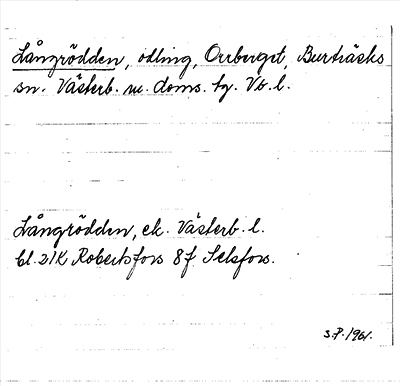 Långrödden, odling, Orrberget, Burträsks
sn. Västerb. m. doms. tg. Vb. l.
Långrödden, ek. Västerb. l.
bl. 21K Robertsfors 8f Selsfors.
S.P. 1961.